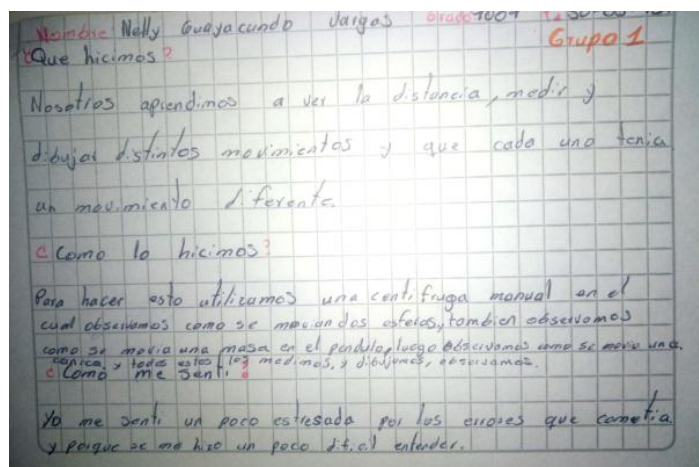 Nombre Nelly Guayacundo Vargas Grado 1001
Grupo 1
¿Que hicimos?
Nosotros aprendimos a ver la distancia, medir y
dibujar distintos movimientos y que cada uno tenia
un movimiento diferente.
¿Como lo hicimos?
Para hacer esto utilizamos una centifruga manual en el
cual observamos como se movian dos esferas, tambien observamos
como se movia una masa en el pendulo, luego observamos como se movio una
canica, y todos estos los medimos, y dibujamos, observamos.
¿Como me senti?
Yo me senti un poco estresada por los errores que cometia
y porque se me hizo un poco dificil entender.